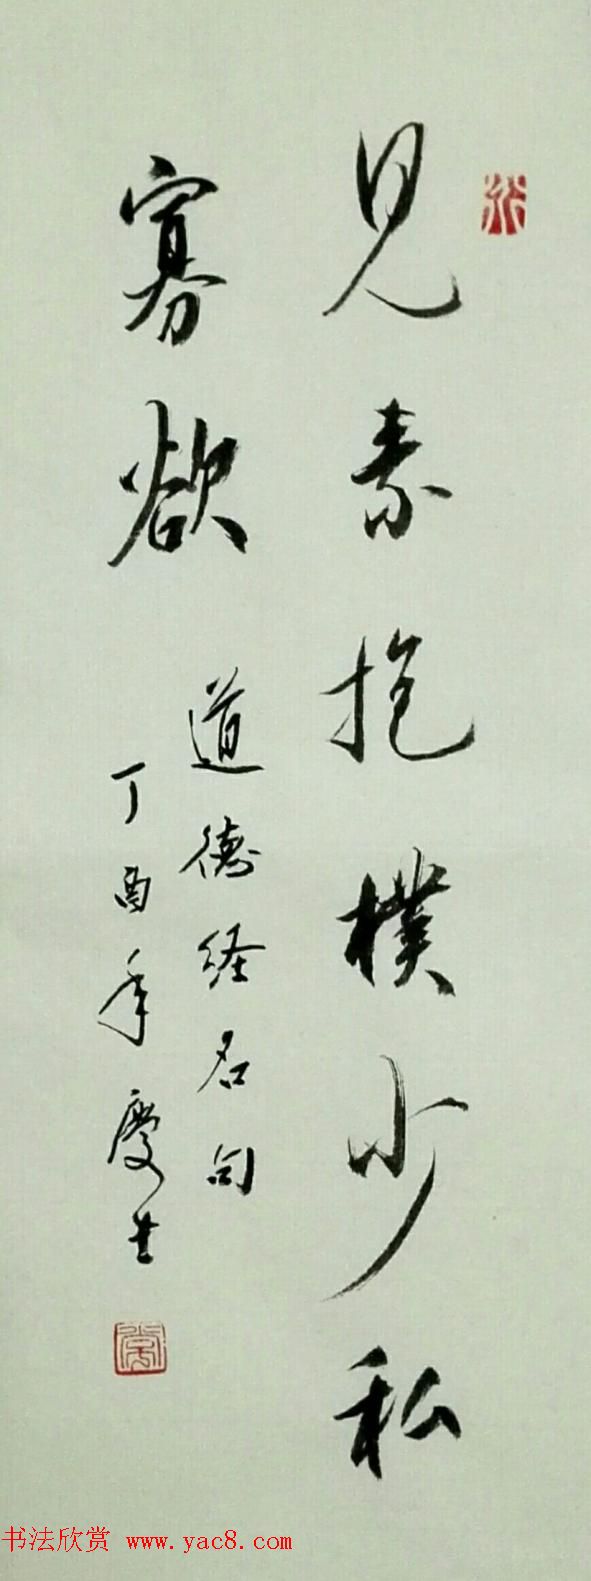 見素抱樸少私
寡欲
道德经名句
丁酉年慶生
书法欣赏 www.yac8.com